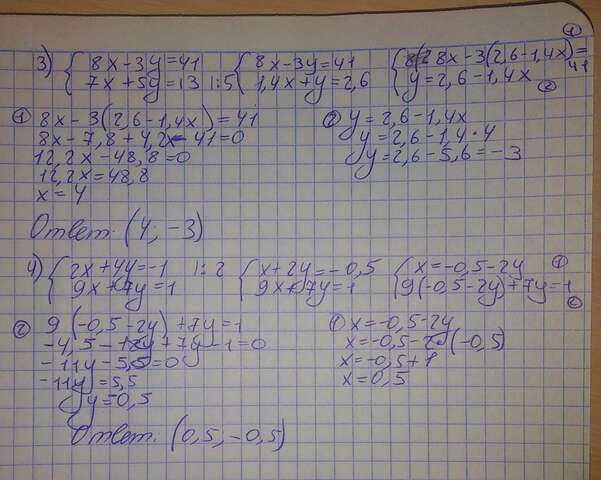 3) { 8x-3y=41 { 8x-3y=41 { 8x-3(2,6-1,4x)=41 ①
7x+5y=13 |:5 1,4x+y=2,6 y=2,6-1,4x ②
① 8x-3(2,6-1,4x)=41 ② y=2,6-1,4x
8x-7,8+4,2x-41=0 y=2,6-1,4·4
12,2x-48,8=0 y=2,6-5,6=-3
12,2x=48,8
x=4
Ответ: (4; -3)
4) { 2x+4y=-1 |:2 { x+2y=-0,5 { x=-0,5-2y ①
9x+7y=1 9x+7y=1 9(-0,5-2y)+7y=1 ②
② 9(-0,5-2y)+7y=1 ① x=-0,5-2y
-4,5-18y+7y-1=0 x=-0,5-2·(-0,5)
-11y-5,5=0 x=-0,5+1
-11y=5,5 x=0,5
y=-0,5
Ответ: (0,5; -0,5)